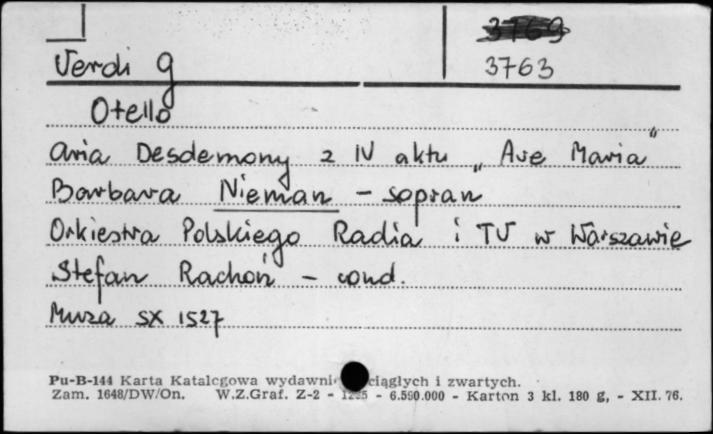 Verdi G
3763
Otello
Aria Desdemony z IV aktu „Ave Maria"
Barbara Nieman – sopran
Orkiestra Polskiego Radia i TV w Warszawie
Stefan Rachoń – cond.
Muza SX 1527
Pu-B-144 Karta Katalogowa ciągłych i zwartych.
Zam. 1648/DW/On. W.Z.Graf. Z-2 - - 6.590.000 - Karton 3 kl. 180 g, - XII. 76.